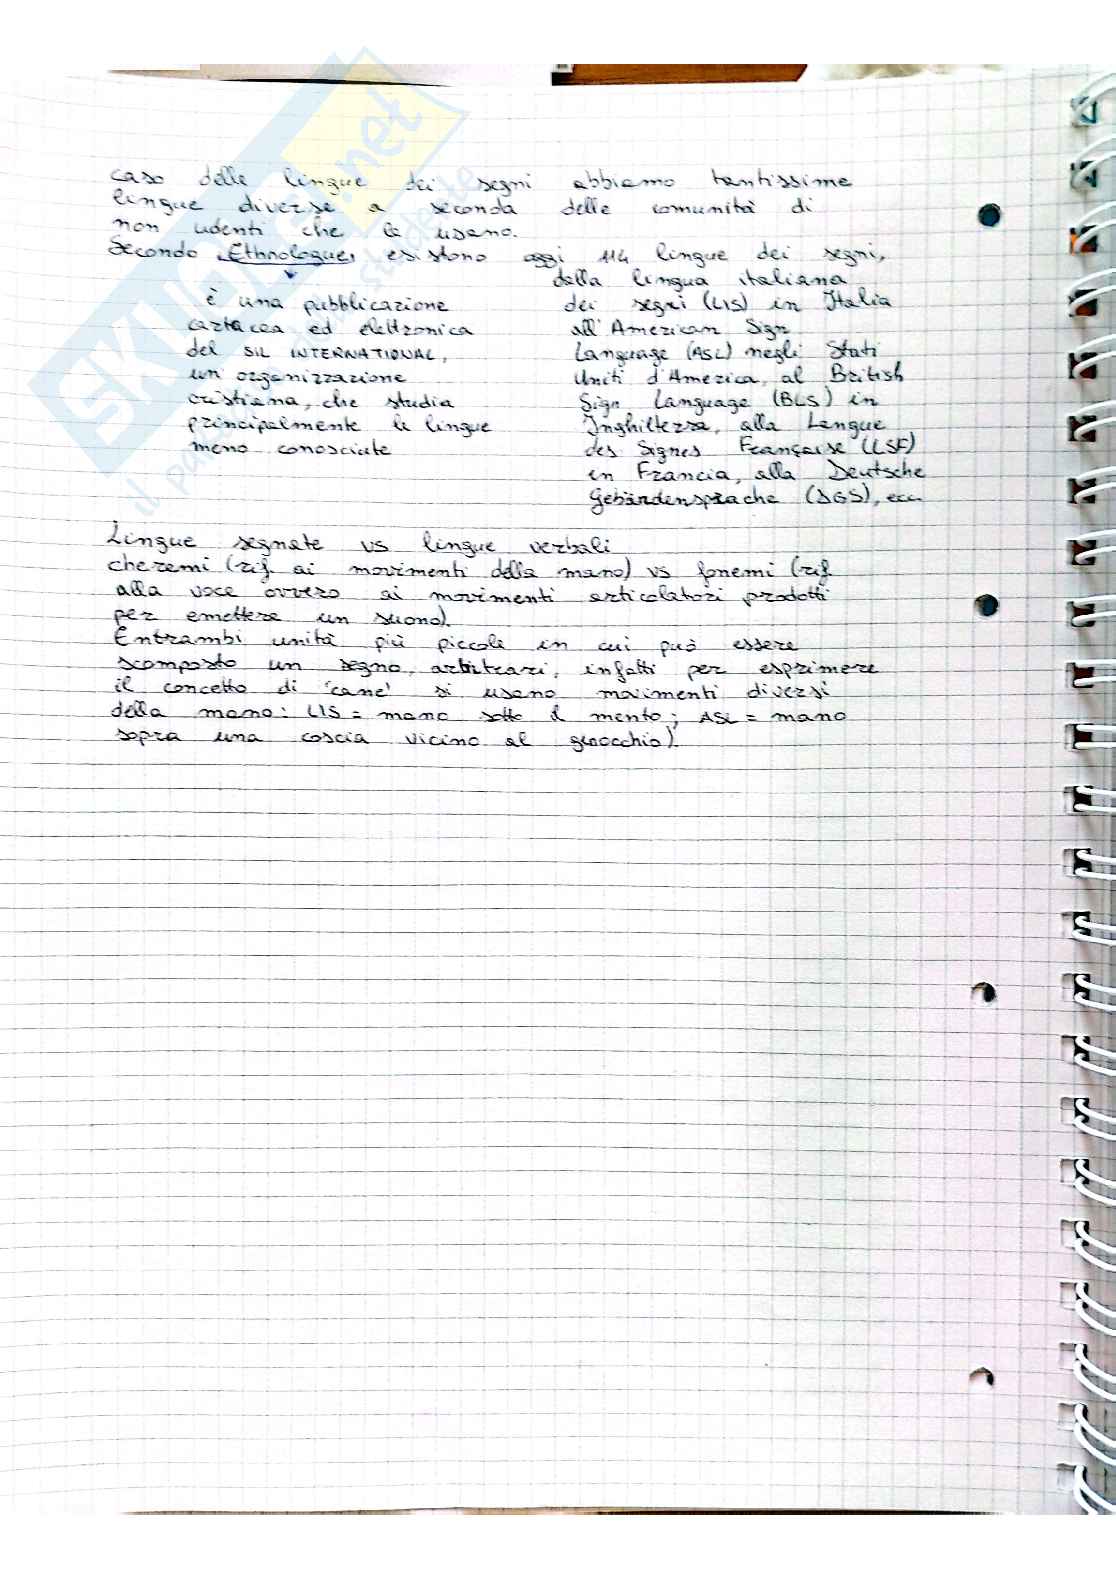 caso delle lingue dei segni abbiamo tantissime
lingue diverse a seconda delle comunità di
non udenti che le usano.
Secondo Ethnologue, esistono oggi 114 lingue dei segni,
dalla lingua italiana
dei segni (LIS) in Italia
all'American Sign
Language (ASL) negli Stati
Uniti d'America, al British
Sign Language (BLS) in
Inghilterra, alla Langue
des Signes Française (LSF)
in Francia, alla Deutsche
Gebärdensprache (DGS), ecc.
è una pubblicazione
cartacea ed elettronica
del SIL INTERNATIONAL,
un'organizzazione
cristiana, che studia
principalmente le lingue
meno conosciute
Lingue segnate vs lingue verbali
cheremi (rif. ai movimenti della mano) vs fonemi (rif.
alla voce ovvero ai movimenti articolatori prodotti
per emettere un suono).
Entrambi unità più piccole in cui può essere
scomposto un segno, arbitrari, infatti per esprimere
il concetto di 'cane' si usano movimenti diversi
della mano: LIS = mano sotto il mento; ASL = mano
sopra una coscia vicino al ginocchio).
SKUOLA.net